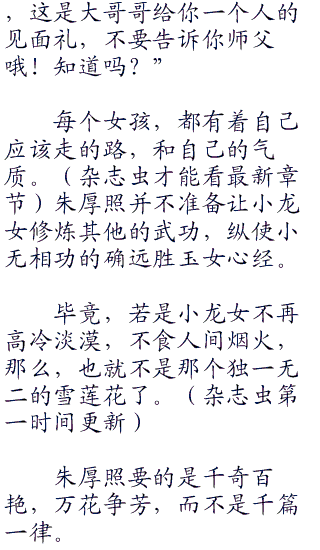 ，这是大哥哥给你一个人的
见面礼，不要告诉你师父
哦！知道吗？”
每个女孩，都有着自己
应该走的路，和自己的气
质。（杂志虫才能看最新章
节）朱厚照并不准备让小龙
女修炼其他的武功，纵使小
无相功的确远胜玉女心经。
毕竟，若是小龙女不再
高冷淡漠，不食人间烟火，
那么，也就不是那个独一无
二的雪莲花了。（杂志虫第
一时间更新）
朱厚照要的是千奇百
艳，万花争芳，而不是千篇
一律。